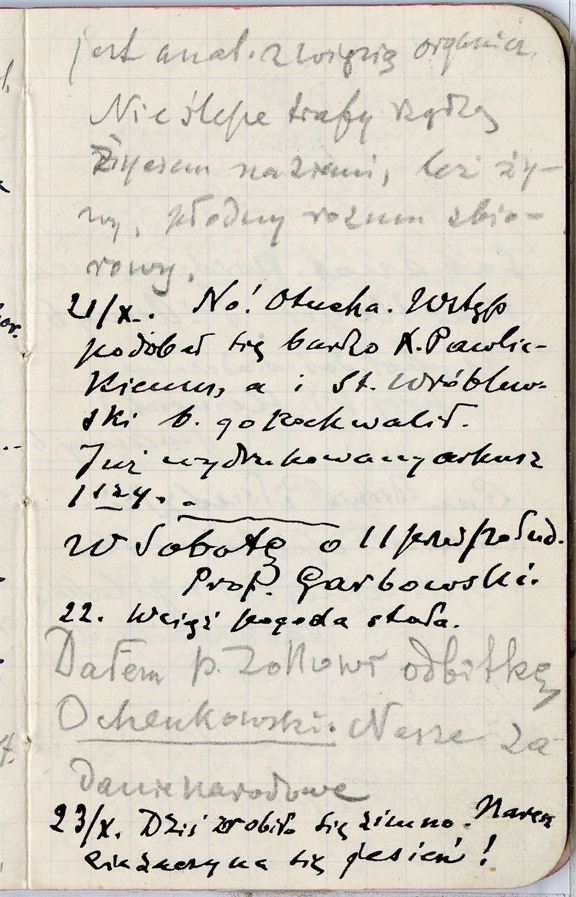 jest anal. z więzią organicz.
Nie ślepe trafy rządzą
życiem na ziemi, lecz ży-
wy, płodny rozum zbio-
rowy.
21/X. No! Otucha. Wstęp
podobał się bardzo X. Pawlic-
kiemu, a i St. Wróblew-
ski b. go pochwalił.
Już wydrukowany arkusz
1szy.
W Sobotę o 11 przedpołud.
Prof. Garbowski.
22. Wciąż pogoda stała.
Dałem p. Zollowi odbitkę
Ochenkowski. Nasze za
danie narodowe
23/X. Dziś zrobiło się zimno. Naresz
cie zaczyna się jesień!